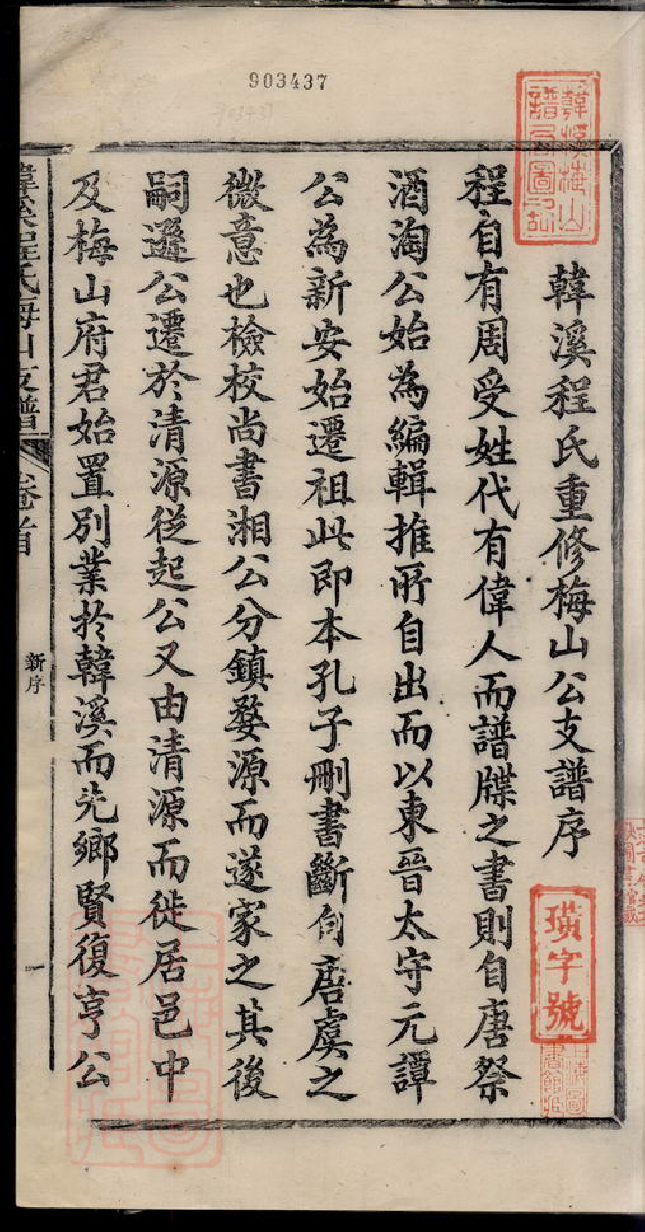 903437
韓溪程氏重修梅山公支譜序
璜字號
程自有周受姓代有偉人而譜牒之書則自唐祭
酒淘公始為編輯推所自出而以東晉太守元譚
公為新安始遷祖此即本孔子刪書斷自唐虞之
微意也檢校尚書湘公分鎮婺源而遂家之其後
嗣遜公遷於清源從起公又由清源而徙居邑中
及梅山府君始置別業於韓溪而先鄉賢復亨公
韓溪程氏梅山支譜
卷首
新序
一